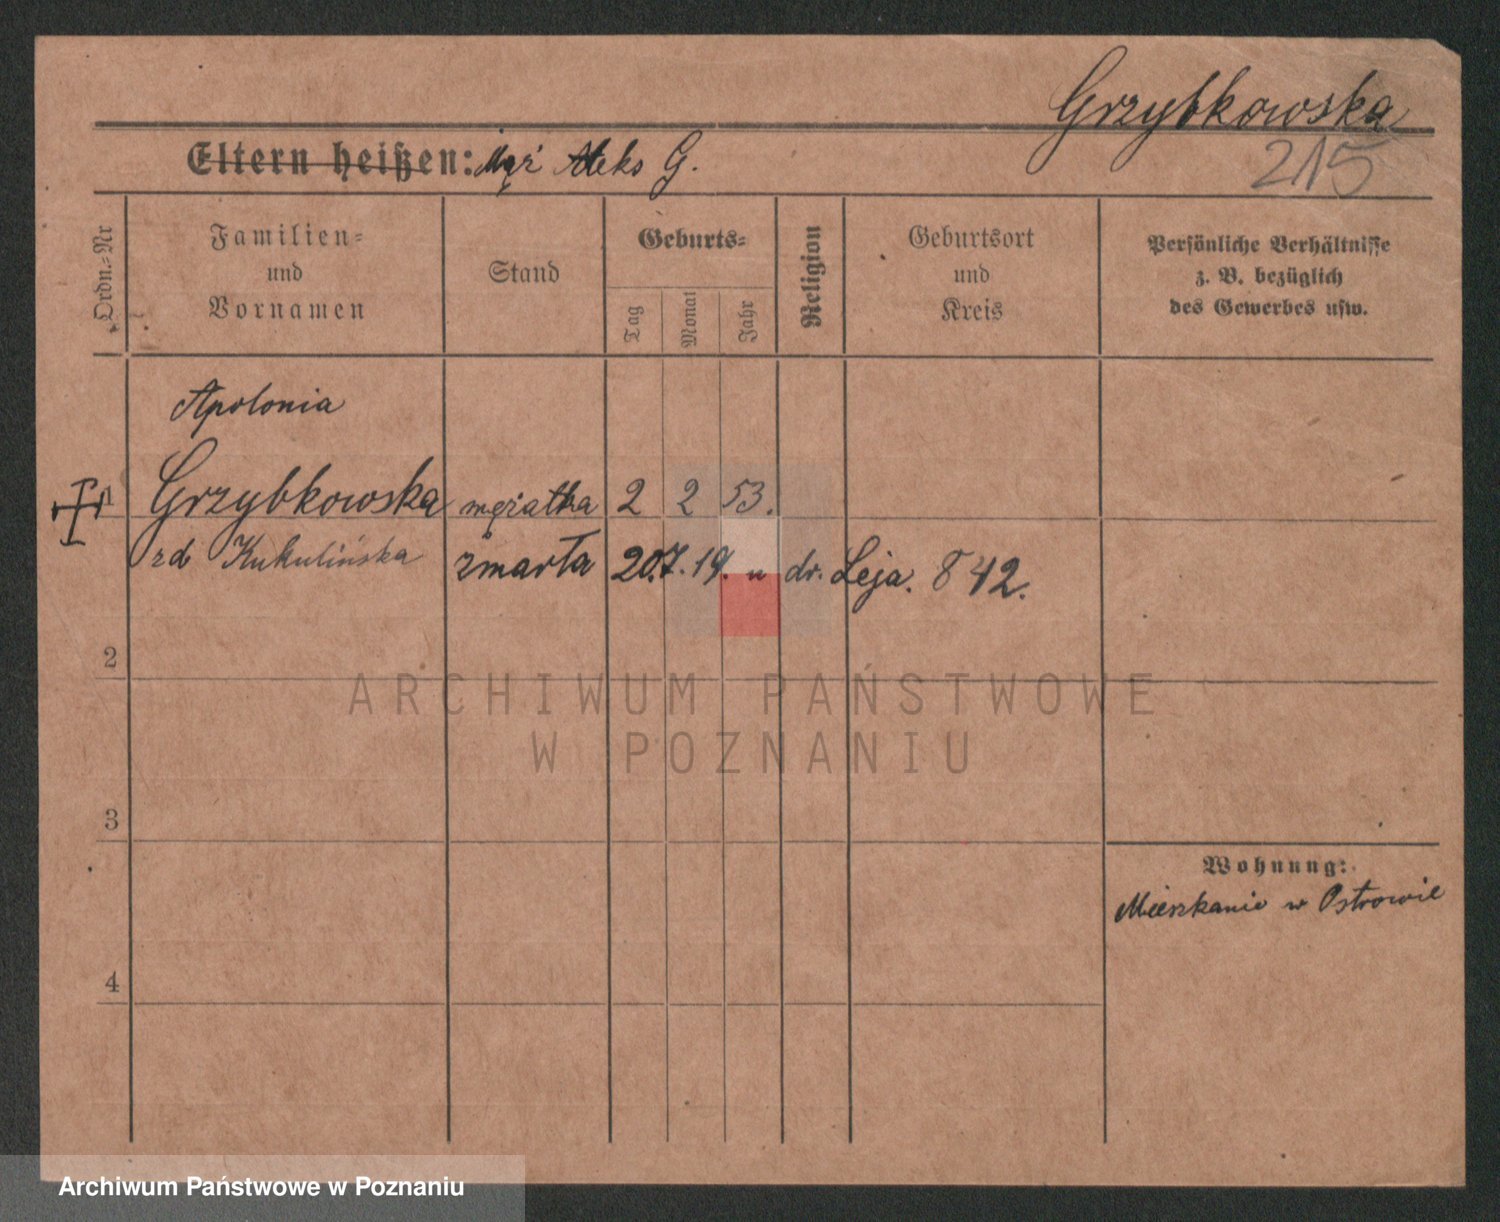 Grzybkowska
215
Eltern heißen: Mąż Aleks G.
Ordn.-Nr
Familien-
und
Vornamen
Stand
Geburts-
Tag
Monat
Jahr
Religion
Geburtsort
und
Kreis
Persönliche Verhältnisse
z. B. bezüglich
des Gewerbes usw.
Apolonia
1 Grzybkowska mężatka 2 2 53.
zd Kukulińska zmarła 20.7.19. u dr. Leja. 842.
2
ARCHIWUM PAŃSTWOWE
W POZNANIU
3
Wohnung:
Mieszkanie w Ostrowie
4
Archiwum Państwowe w Poznaniu